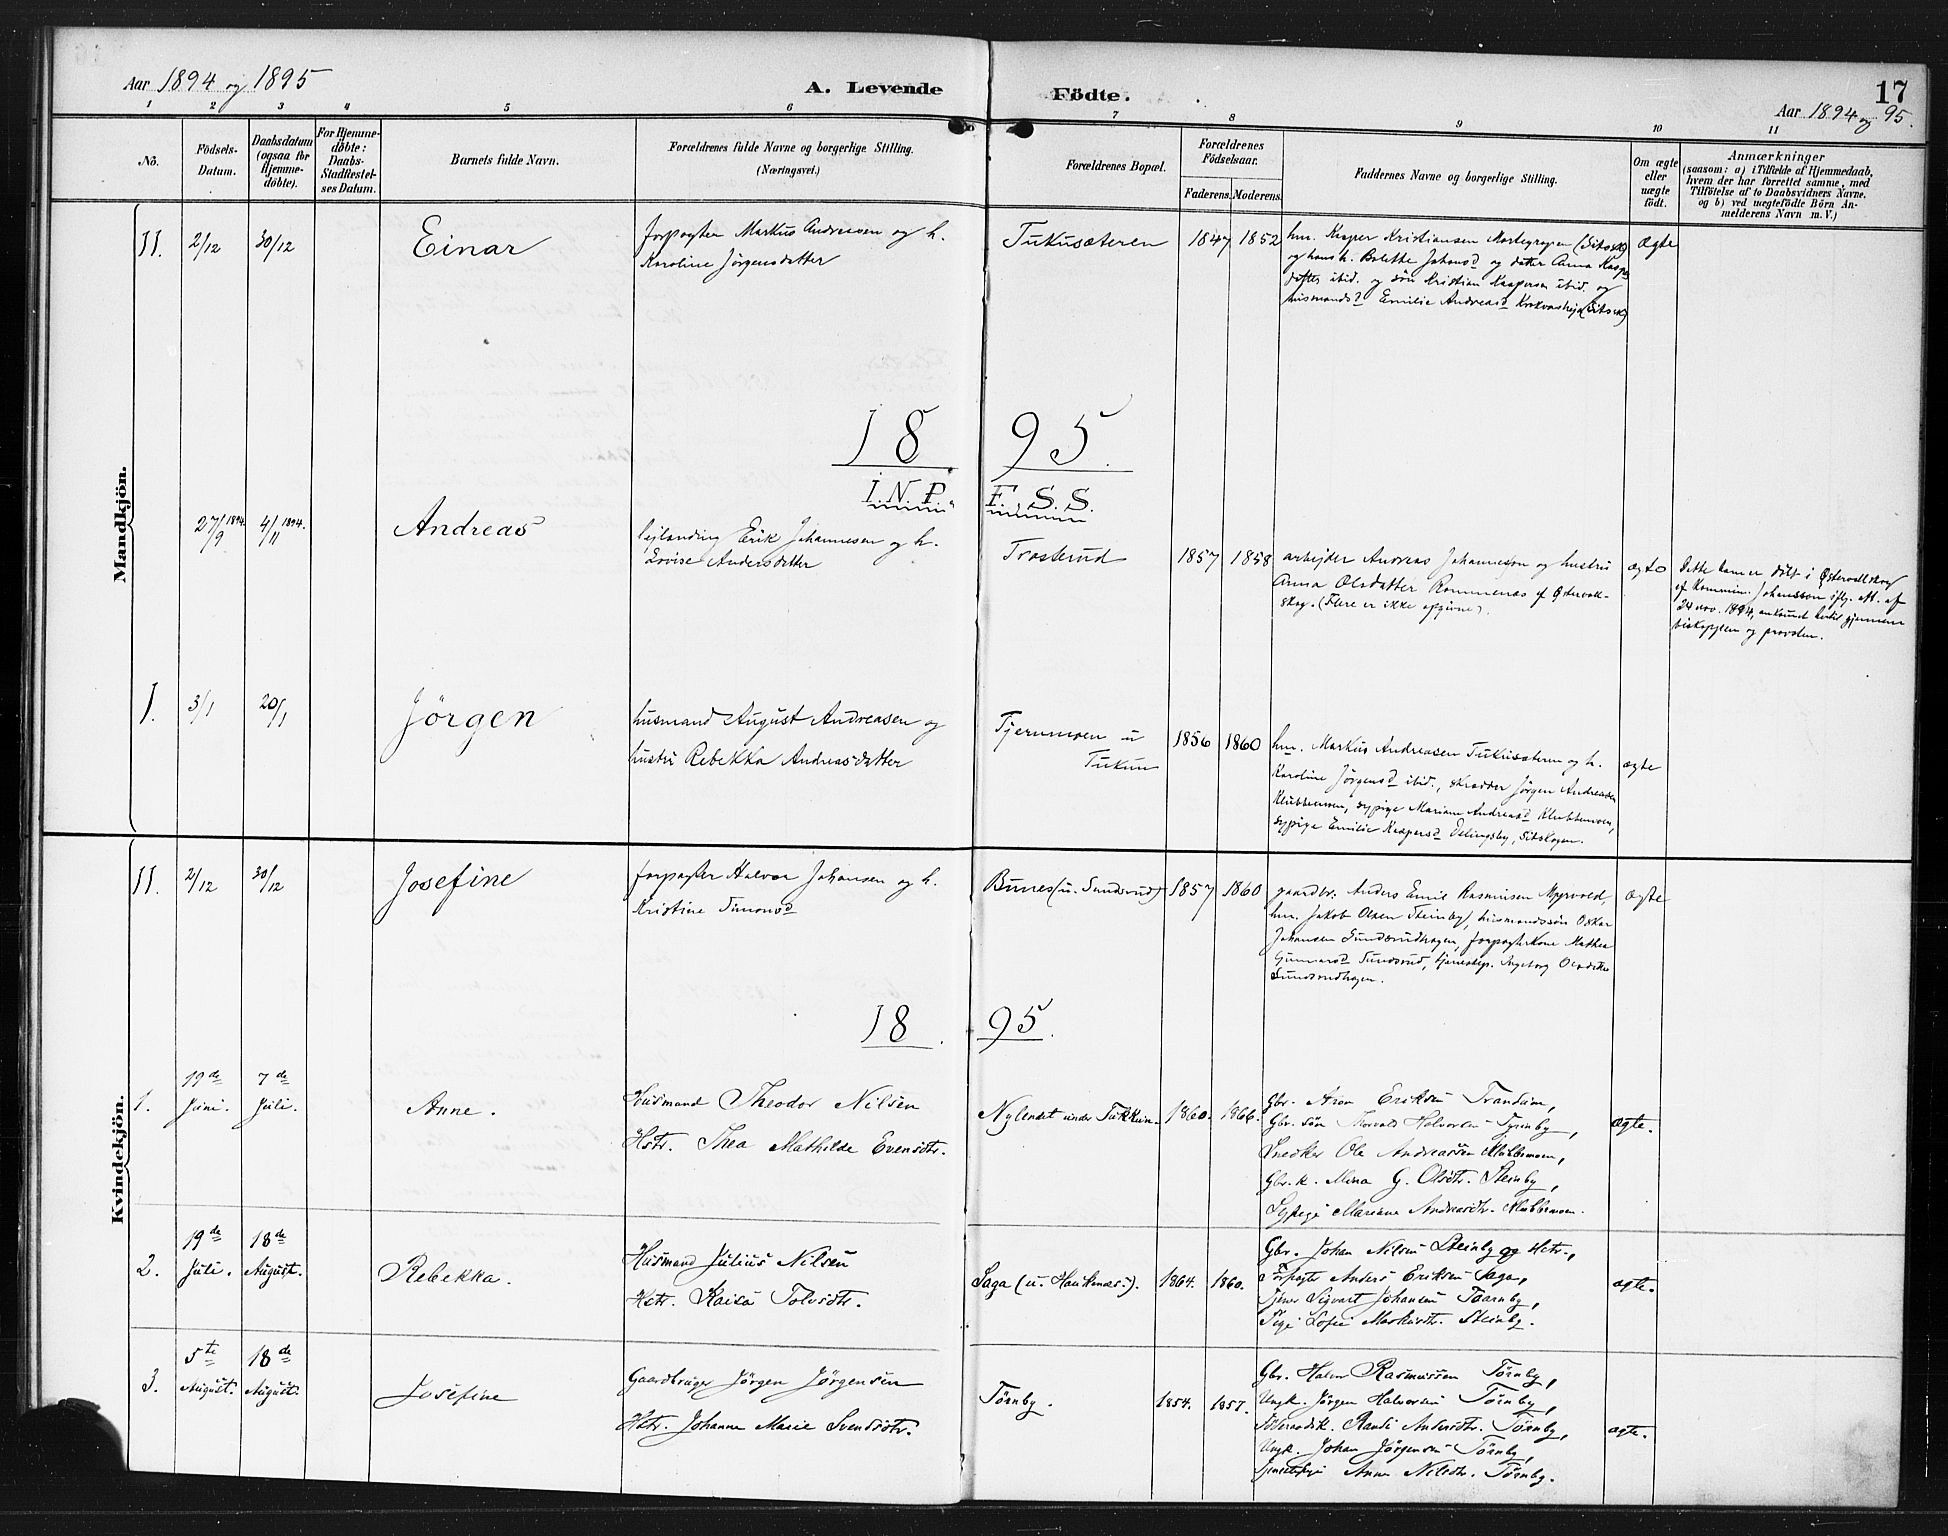 Aar 1894 og 1895
A. Levende Födte.
17
Aar 1894 og 95.
1 2 3 4 5 6 7 8 9 10 11
No.
Födsels-Datum.
Daabsdatum (ogsaa for Hjemme-döbte).
For Hjemme-döbte: Daabs-Stadfæstel-ses Datum.
Barnets fulde Navn.
Forældrenes fulde Navne og borgerlige Stilling.
(Næringsvei.)
Forældrenes Bopæl.
Forældrenes Födselsaar.
Faderens. Moderens.
Faddernes Navne og borgerlige Stilling.
Om ægte eller uægte födt.
Anmærkninger
(saasom: a) i Tilfælde af Hjemmedaab,
hvem der har forrettet samme, med
Tilföielse af to Daabsvidners Navne,
og b) ved uægtefödte Börn An-
melderens Navn m. V.)
Mandkjön.
11. 2/12 30/12 Einar
forpagter Markus Andreasen og h.
Karoline Jörgensdatter
Tukusæteren 1847 1852
hm. Kasper Kristiansen Mortsgropen (Sitsk)
og hans h. Bolette Johansd og datter Anna Kasp
datter ibid. og sön Kristian Kaspersen ibid. og
husmandsd Emilie Andreasd (Sitsk)
ægte
18 95.
I. N. P. F. S. S.
27/9 1894. 4/11 1894. Andreas
Erik Johannesen og h.
Lovise Andersdatter
Trosterud 1857 1858
arbejder Andreas Johannesen og hustru
Anna Olsdatter Rommenæs af Östervall-
skog. (Flere er ikke opgivne).
ægte
Dette barn er döbt i Östervallskog
af Kommin. Johansson iflg. Att. af
24 nov. 1894, ankomst hertil gjennem
biskoppen og provsten.
1. 3/1 20/1 Jörgen
husmand August Andreasen og
hustru Rebekka Andreasdatter
Tjernmoen u
Tukun
1856 1860
hm. Markus Andreasen Tukusæteren og h.
Karoline Jörgensd ibid., skrædder Jörgen Andreasen
Klubbemoen, sypige Mariane Andreasd Klubbemoen,
sypige Emilie Kaspersd Edingsby, Sitskogen.
ægte
Kvindekjön.
11. 2/12 30/12 Josefine
forpagter Halvor Johansen og h.
Kristine Simonsd
Bunes (u. Sundsrud) 1857 1860
gaardbr. Anders Emil Rasmusen Myrvold,
hm. Jakob Olsen Steinby, husmandssön Oskar
Johansen Sundsrudhagen, forpagterkone Mathea
Gunnarsd Sundsrud, tjenestep. Ingeborg Olsdatter
Sundsrudhagen.
ægte
18 95.
1. 19de Juni. 7de Juli. Anne.
Husmand Theodor Nilsen
Hstr. Thea Mathilde Evensdtr.
Nylendet under Tukkun. 1860. 1866.
Gbr. Aron Eriksen Trandum,
Gbr. sön Thorvald Halvorsen Tyrinby,
Snedker Ole Andreassen Klubbemoen,
Gbr. k. Mina G. Olsdtr. Steinby,
Sypige Mariane Andreasdtr. Klubbemoen.
ægte.
2. 19de Juli. 18de August. Rebekka.
Husmand Julius Nilsen
Hstr. Kaisa Tolvsdtr.
Saga (u. Haukenæs). 1864. 1860.
Gbr. Johan Nilsen Steinby og Hstr.,
Forpagter Anders Eriksen Saga,
Tjener Sigvart Johansen Taarnby,
Pige Sofie Markusdtr. Steinby.
ægte.
3. 5te August. 18de August. Josefine
Gaardbruger Jörgen Jörgensen
Hstr. Johanne Marie Svendsdtr.
Törnby. 1854. 1857.
Gbr. Halvor Rasmussen Törnby,
Ungk. Jörgen Halvorsen Törnby,
Randi Andersdtr. Törnby,
Ungk. Johan Jörgensen Törnby,
Tjenestepige Anne Nilsdtr. Törnby.
ægte.